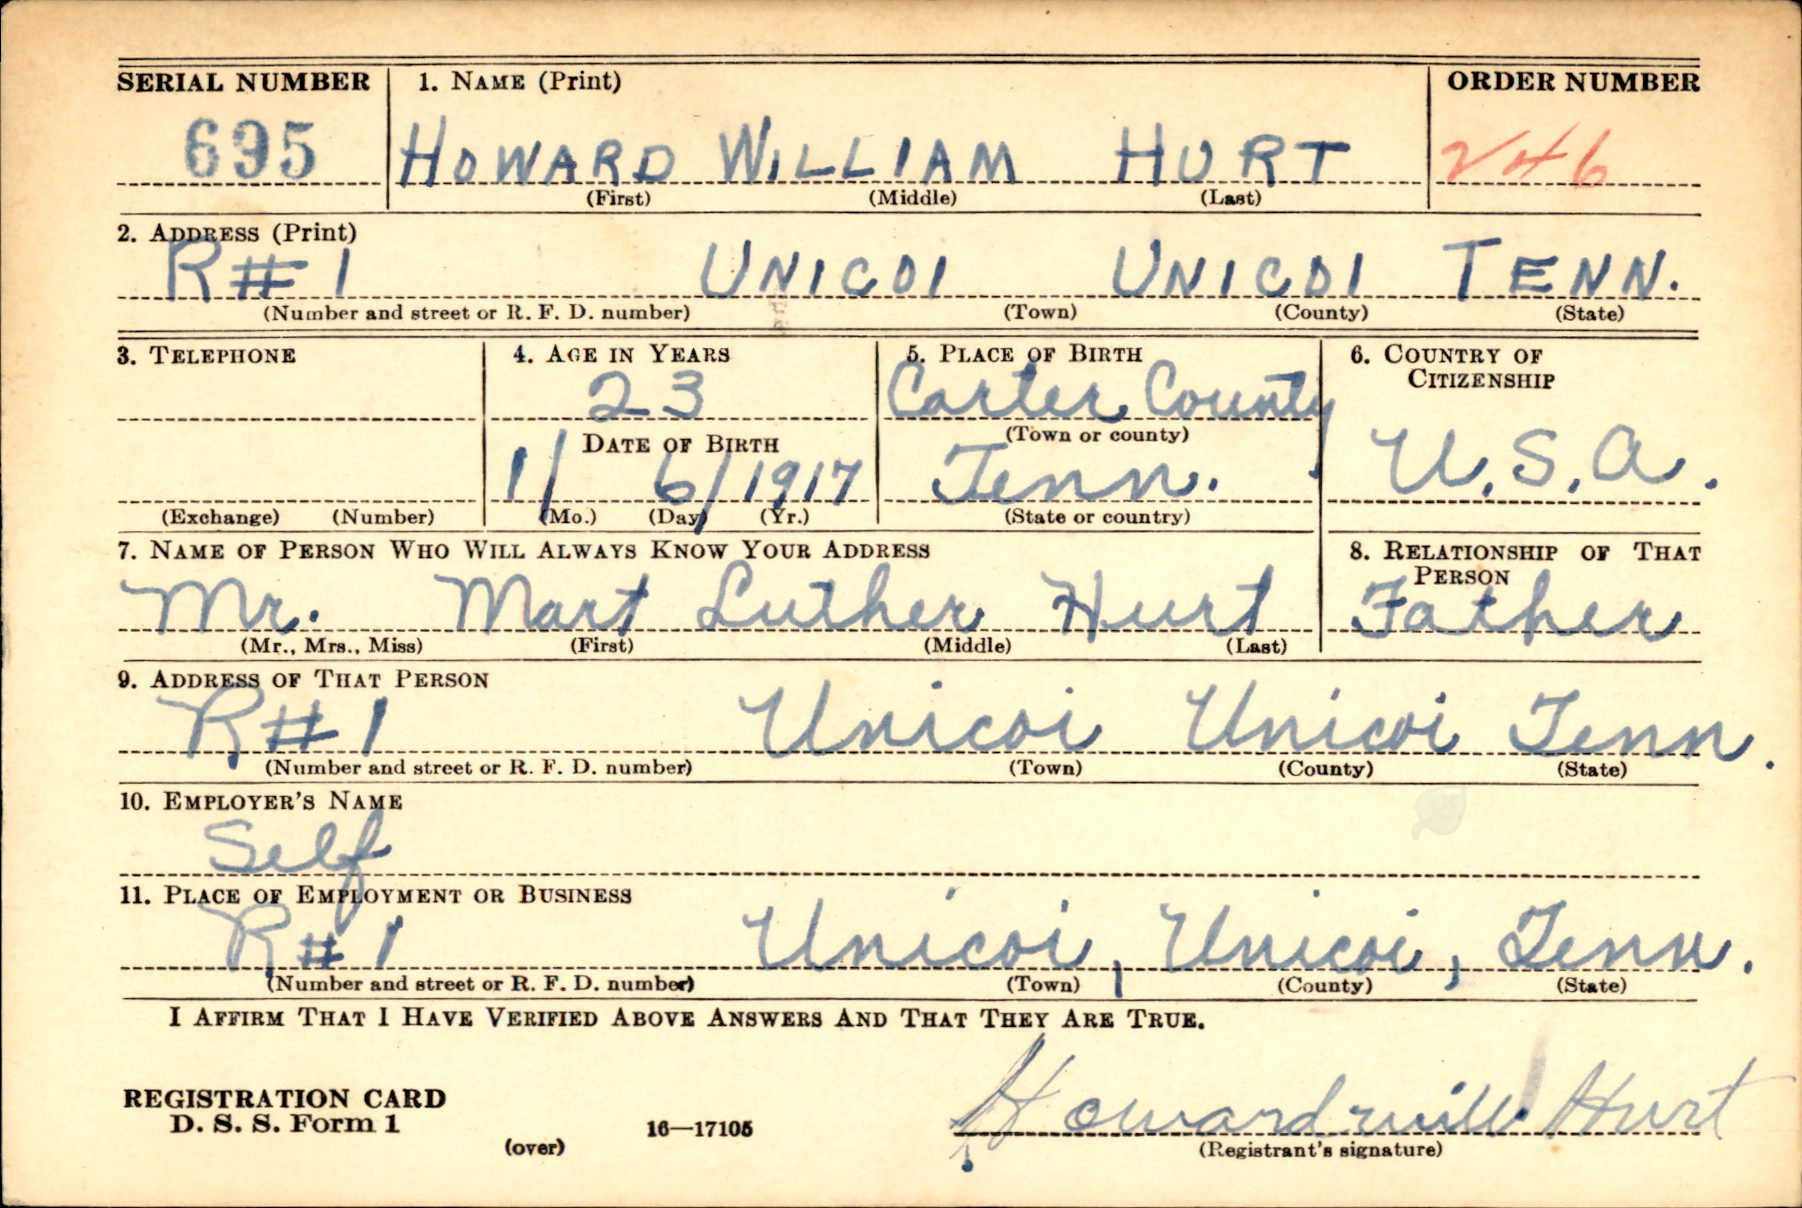 SERIAL NUMBER 1. NAME (Print) ORDER NUMBER
695 HOWARD WILLIAM HURT 246
(First) (Middle) (Last)
2. ADDRESS (Print)
R#1 UNICOI UNICOI TENN.
(Number and street or R. F. D. number) (Town) (County) (State)
3. TELEPHONE 4. AGE IN YEARS 5. PLACE OF BIRTH 6. COUNTRY OF
CITIZENSHIP
23 Carter County
DATE OF BIRTH (Town or county)
1/ 6/1917 Tenn. U.S.A.
(Exchange) (Number) (Mo.) (Day) (Yr.) (State or country)
7. NAME OF PERSON WHO WILL ALWAYS KNOW YOUR ADDRESS 8. RELATIONSHIP OF THAT
PERSON
Mr. Mart Luther Hurt Father
(Mr., Mrs., Miss) (First) (Middle) (Last)
9. ADDRESS OF THAT PERSON
R#1 Unicoi Unicoi Tenn.
(Number and street or R. F. D. number) (Town) (County) (State)
10. EMPLOYER'S NAME
Self
11. PLACE OF EMPLOYMENT OR BUSINESS
R#1 Unicoi, Unicoi, Tenn.
(Number and street or R. F. D. number) (Town) (County) (State)
I AFFIRM THAT I HAVE VERIFIED ABOVE ANSWERS AND THAT THEY ARE TRUE.
REGISTRATION CARD
D. S. S. Form 1 16—17105 Howard will Hurt
(over) (Registrant's signature)